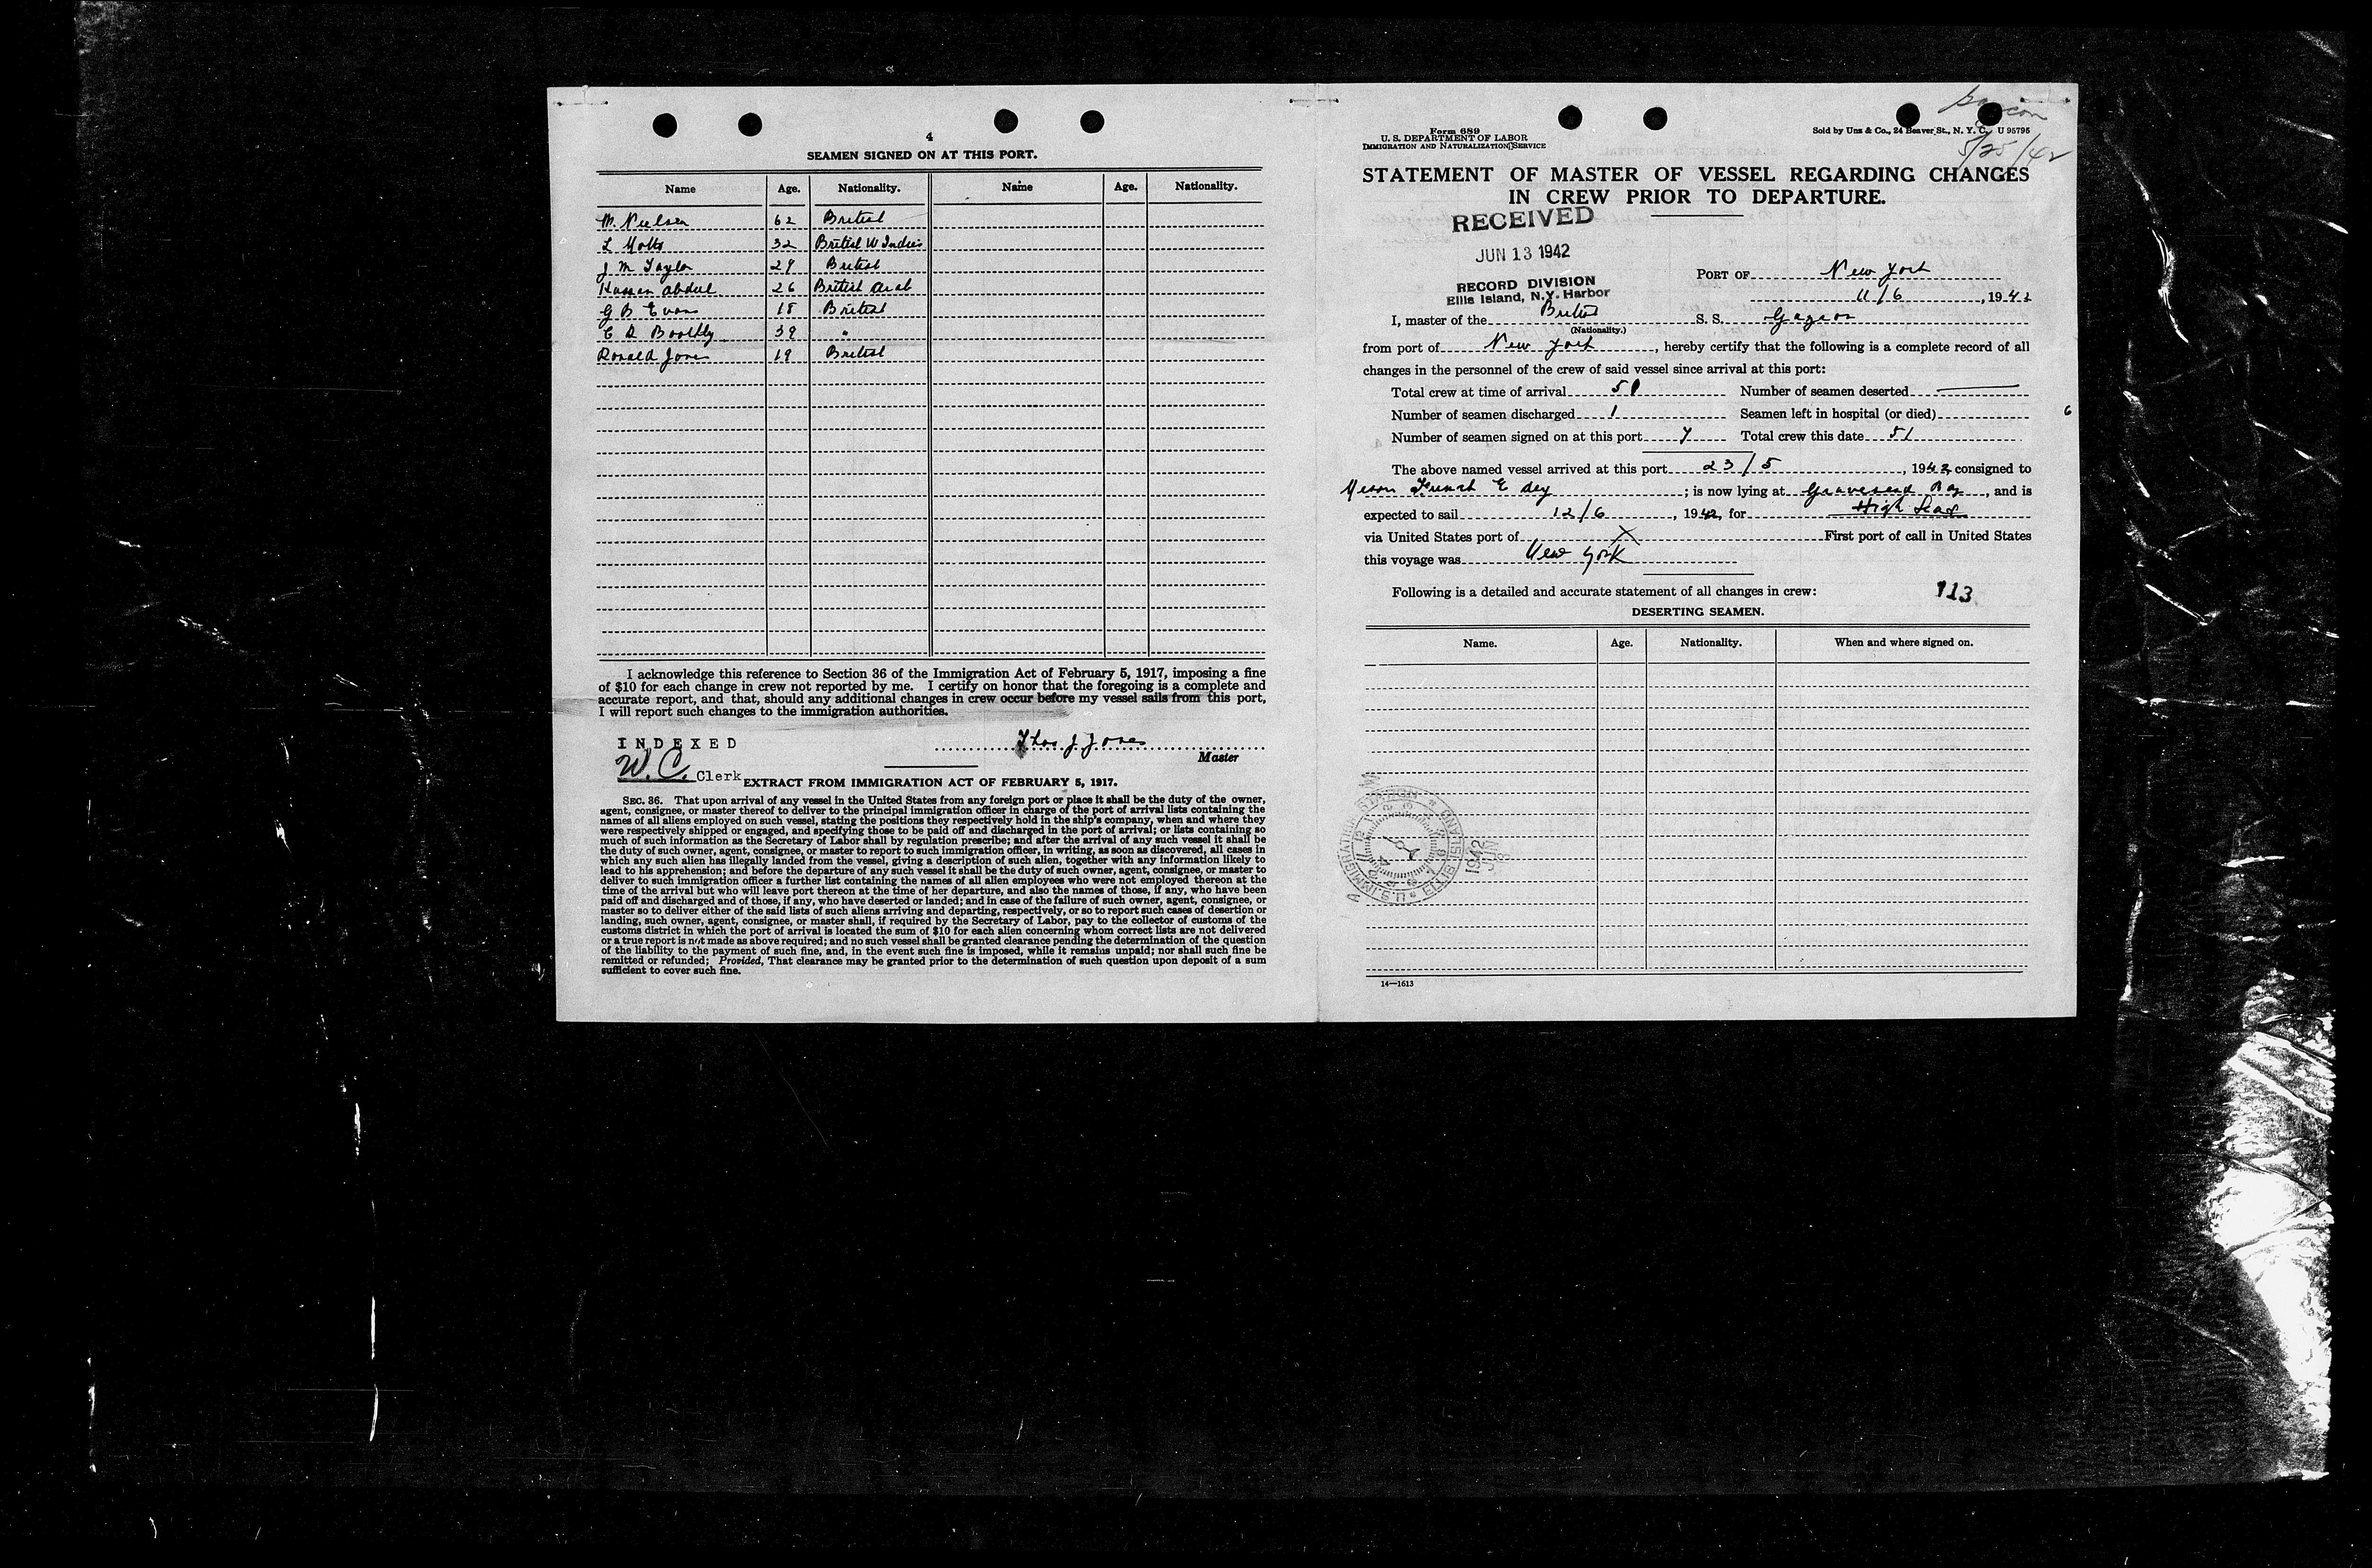 4
SEAMEN SIGNED ON AT THIS PORT.
Name Age. Nationality. Name Age. Nationality.
M. Nielsen 62 British
L 32 British W Indies
J M Taylor 29 British
Hassan Abdul 26 British Arab
G B Evans 18 British
C R 39 "
Ronald Jones 19 British
I acknowledge this reference to Section 36 of the Immigration Act of February 5, 1917, imposing a fine
of $10 for each change in crew not reported by me. I certify on honor that the foregoing is a complete and
accurate report, and that, should any additional changes in crew occur before my vessel sails from this port,
I will report such changes to the immigration authorities.
INDEXED
Thos J Jones
Master
W. C. Clerk
EXTRACT FROM IMMIGRATION ACT OF FEBRUARY 5, 1917.
SEC. 36. That upon arrival of any vessel in the United States from any foreign port or place it shall be the duty of the owner,
agent, consignee, or master thereof to deliver to the principal immigration officer in charge of the port of arrival lists containing the
names of all aliens employed on such vessel, stating the positions they respectively hold in the ship's company, when and where they
were respectively shipped or engaged, and specifying those to be paid off and discharged in the port of arrival; or lists containing so
much of such information as the Secretary of Labor shall by regulation prescribe; and after the arrival of any such vessel it shall be
the duty of such owner, agent, consignee, or master to report to such immigration officer, in writing, as soon as discovered, all cases in
which any such alien has illegally landed from the vessel, giving a description of such alien, together with any information likely to
lead to his apprehension; and before the departure of any such vessel it shall be the duty of such owner, agent, consignee, or master to
deliver to such immigration officer a further list containing the names of all alien employees who were not employed thereon at the
time of the arrival but who will leave port thereon at the time of her departure, and also the names of those, if any, who have been
paid off and discharged and of those, if any, who have deserted or landed; and in case of the failure of such owner, agent, consignee, or
master so to deliver either of the said lists of such aliens arriving and departing, respectively, or so to report such cases of desertion or
landing, such owner, agent, consignee, or master shall, if required by the Secretary of Labor, pay to the collector of customs of the
customs district in which the port of arrival is located the sum of $10 for each alien concerning whom correct lists are not delivered
or a true report is not made as above required; and no such vessel shall be granted clearance pending the determination of the question
of the liability to the payment of such fine, and, in the event such fine is imposed, while it remains unpaid; nor shall such fine be
remitted or refunded; Provided, That clearance may be granted prior to the determination of such question upon deposit of a sum
sufficient to cover such fine.
Form 689
U. S. DEPARTMENT OF LABOR
IMMIGRATION AND NATURALIZATION SERVICE
Sold by Unz & Co., 24 Beaver St., N. Y. C. U 95795
5/25/42
STATEMENT OF MASTER OF VESSEL REGARDING CHANGES
IN CREW PRIOR TO DEPARTURE.
RECEIVED
JUN 13 1942
RECORD DIVISION
Ellis Island, N.Y. Harbor
PORT OF New York
11/6, 1942
I, master of the British S. S. Gazcon
(Nationality.)
from port of New York, hereby certify that the following is a complete record of all
changes in the personnel of the crew of said vessel since arrival at this port:
Total crew at time of arrival 51 Number of seamen deserted
Number of seamen discharged 1 Seamen left in hospital (or died) 6
Number of seamen signed on at this port 7 Total crew this date 51
The above named vessel arrived at this port 23/5, 1942 consigned to
; is now lying at Gravesend Bay, and is
expected to sail 12/6, 1942, for High Seas
via United States port of X First port of call in United States
this voyage was New York
Following is a detailed and accurate statement of all changes in crew:
113
DESERTING SEAMEN.
Name. Age. Nationality. When and where signed on.
1942
JUN
14—1613